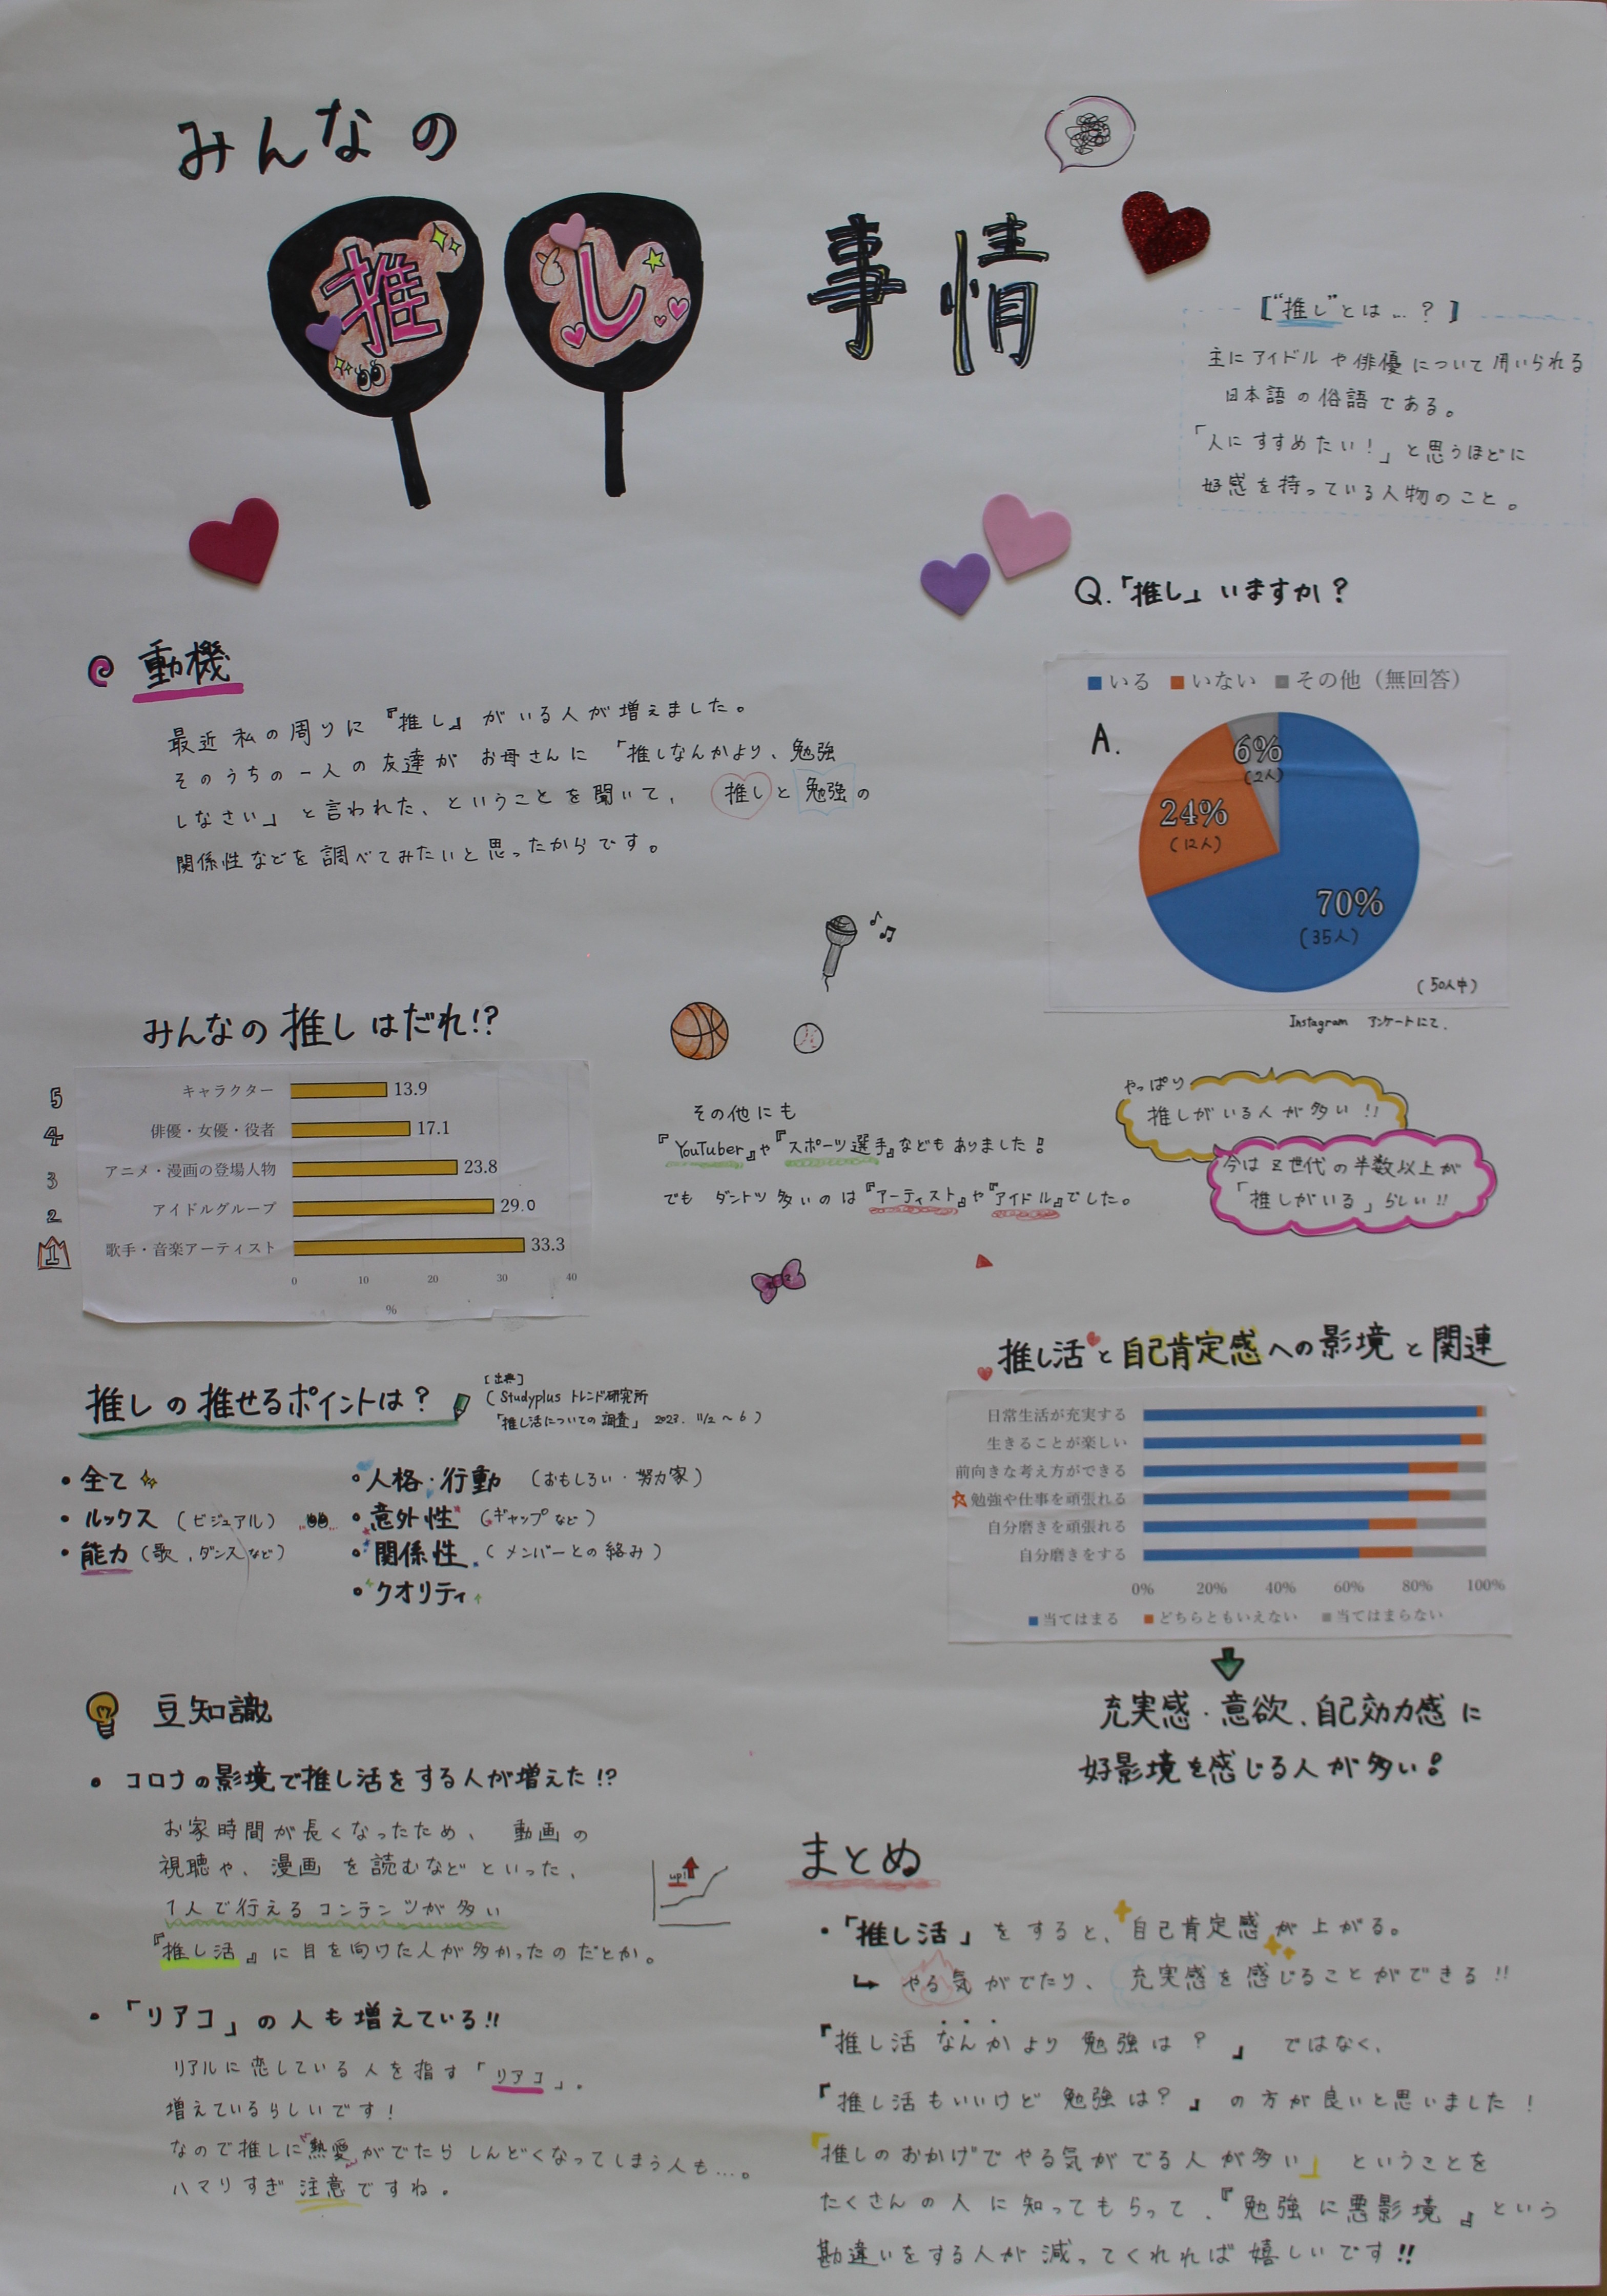 みんなの
推し事情
【"推し"とは…？】
主にアイドルや俳優について用いられる
日本語の俗語である。
「人にすすめたい！」と思うほどに
好感を持っている人物のこと。
動機
最近私の周りに『推し』がいる人が増えました。
そのうちの一人の友達がお母さんに「推しなんかより、勉強
しなさい」と言われた、ということを聞いて、推しと勉強の
関係性などを調べてみたいと思ったからです。
Q.「推し」いますか？
いる いない その他（無回答）
A.
6%
(2人)
24%
(12人)
70%
(35人)
(50人中)
Instagram アンケートにて.
やっぱり
推しがいる人が多い!!
今はZ世代の半数以上が
「推しがいる」らしい!!
みんなの推しはだれ!?
5 キャラクター 13.9
4 俳優・女優・役者 17.1
3 アニメ・漫画の登場人物 23.8
2 アイドルグループ 29.0
1 歌手・音楽アーティスト 33.3
0 10 20 30 40
%
その他にも
『YouTuber』や『スポーツ選手』などもありました!
でもダントツ多いのは『アーティスト』や『アイドル』でした。
推しの推せるポイントは？
[出典]
(Studyplus トレンド研究所
「推し活についての調査」 2023. 11/2～6)
・全て
・ルックス（ビジュアル）
・能力（歌、ダンスなど）
・人格・行動（おもしろい・努力家）
・意外性（ギャップなど）
・関係性（メンバーとの絡み）
・クオリティ
推し活と自己肯定感への影境と関連
日常生活が充実する
生きることが楽しい
前向きな考え方ができる
☆勉強や仕事を頑張れる
自分磨きを頑張れる
自分磨きをする
0% 20% 40% 60% 80% 100%
当てはまる どちらともいえない 当てはまらない
充実感・意欲、自己効力感に
好影境を感じる人が多い!
豆知識
・コロナの影境で推し活をする人が増えた!?
お家時間が長くなったため、動画の
視聴や、漫画を読むなどといった、
1人で行えるコンテンツが多い
『推し活』に目を向けた人が多かったのだとか。
up!
・「リアコ」の人も増えている!!
リアルに恋している人を指す「リアコ」。
増えているらしいです！
なので推しに"熱愛"がでたらしんどくなってしまう人も…。
ハマりすぎ注意ですね。
まとめ
・「推し活」をすると、自己肯定感が上がる。
↳ やる気がでたり、充実感を感じることができる!!
『推し活なんかより勉強は？』ではなく、
『推し活もいいけど勉強は？』の方が良いと思いました！
「推しのおかげでやる気がでる人が多い」ということを
たくさんの人に知ってもらって、『勉強に悪影境』という
勘違いをする人が減ってくれれば嬉しいです!!